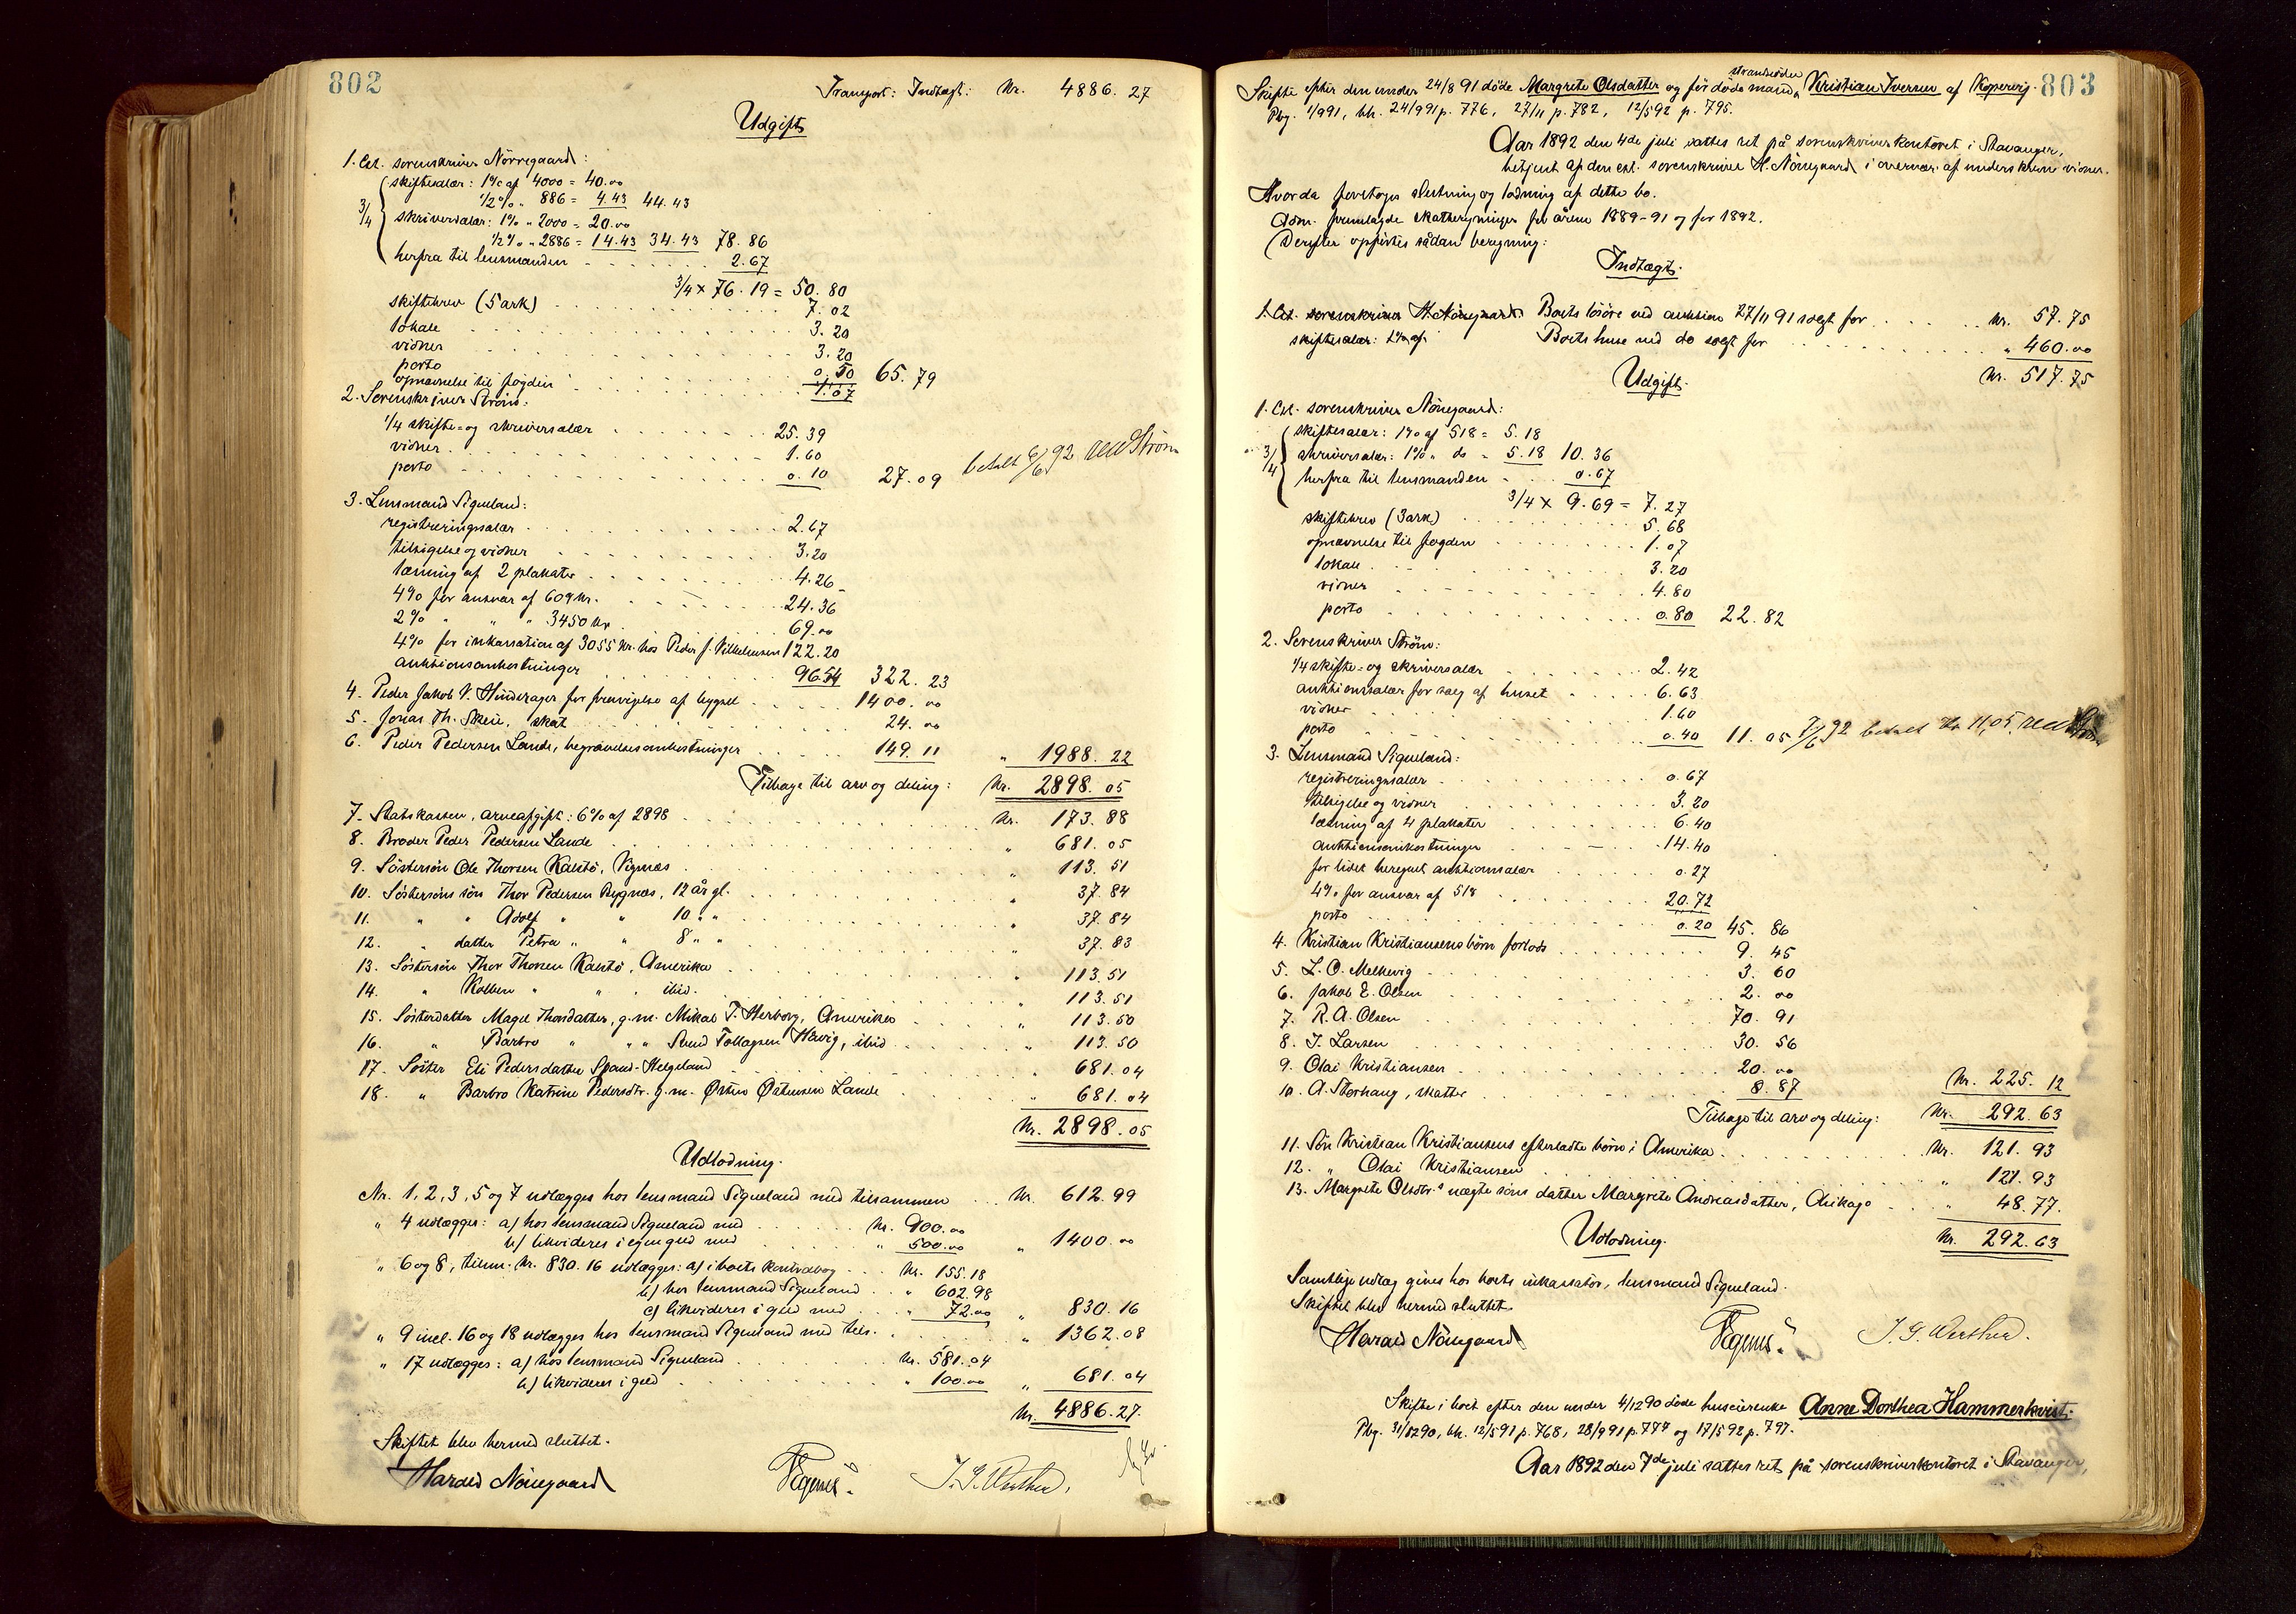 802
Transport: Indtægt: Kr. 4886.27
Udgift
1. Cst. sorenskriver Nörregaard:
3/4 skiftesalær: 1% af 4000 = 40.00
1/2% „ 886 = 4.43 44.43
skriversalær: 1% „ 2000 = 20.00
1/2% „ 2886 = 14.43 34.43 78.86
herfra til lensmanden 2.67
3/4 x 76.19 = 50.80
skiftebrev (5 ark) 7.02
lokale 3.20
vidner 3.20
porto 0.50 65.79
opnævnelse til fogden 1.07
2. Sorenskriver Ström:
1/4 skifte- og skriversalær 25.39
vidner 1.60
porto 0.10 27.09 betalt 6/6 92
3. Lensmand Sigveland:
registreringssalær 2.67
tilsigelse og vidner 3.20
læsning af 2 plakater 4.26
4% for ansvar af 609 kr. 24.36
2% „ „ „ 3450 kr. 69.00
4% for inkassation af 3055 kr. hos Peder J. Vilhelmsen 122.20
auktionsomkostninger 96.54 322.23
4. Peder Jakob V. Hinderager for fravigelse af bygsel 1400.00
5. Jonas Th. Skeie, skat 24.00
6. Peder Pedersen Lande, begravelsesomkostninger 149.11 „ 1988.22
Tilbage til arv og deling: Kr. 2898.05
7. Statskassen, arveafgift: 6% af 2898 Kr. 173.88
8. Broder Peder Pedersen Lande „ 681.05
9. Söstersön Ole Thorsen Kalstö, Vignæs „ 113.51
10. Söstersöns sön Thor Pedersen Rygnæs, 12 år gl. „ 37.84
11. „ „ Adolf „ „ 10 „ „ „ 37.84
12. „ datter Petra „ „ 8 „ „ „ 37.83
13. Söstersön Thor Thorsen Kalstö, Amerika „ 113.51
14. „ Kolben „ „ , ibid. „ 113.51
15. Sösterdatter Magel Thorsdatter, g. m. Mikal T. Herborg, Amerika „ 113.50
16. „ Barbro „ „ „ Svend Tollagsen Håvig, ibid „ 113.50
17. Söster Eli Pedersdatter Spand-Helgeland „ 681.04
18. „ Barbro Katrine Pedersdtr. g. m. Østen Østensen Lande „ 681.04
Kr. 2898.05
Udlodning.
Nr. 1, 2, 3, 5 og 7 udlægges hos lensmand Sigveland med tilsammen Kr. 612.99
„ 4 udlægges: a) hos lensmand Sigveland med Kr. 900.00
b) likvideres i egen gjeld med „ 500.00 „ 1400.00
„ 6 og 8, tilsm. Kr. 830.16 udlægges: a) i boets kontrabog Kr. 155.18
b) hos lensmand Sigveland „ 602.98
c) likvideres i gjeld med „ 72.00 „ 830.16
„ 9 incl. 16 og 18 udlægges hos lensmand Sigveland med tils. „ 1362.08
„ 17 udlægges: a) hos lensmand Sigveland Kr. 581.04
b) likvideres i gjeld „ 100.00 „ 681.04
Kr. 4886.27.
Skiftet blev hermed sluttet.
Harald Nörregaard
803
Skifte efter den under 24/8 91 döde Margrete Olsdatter og för döde mand, strandsidder Kristian Iversen af Kopervig.
Pbg. 1/9 91, bh. 24/9 91 p. 776, 27/11 p. 782, 12/5 92 p. 795.
Aar 1892 den 4de juli sattes ret på sorenskriverkontoret i Stavanger,
betjent af den cst. sorenskriver H. Nörregaard i overvær af underskrevne vidner.
Hvorda foretoges slutning og lodning af dette bo.
Adm. fremlagde skatteregninger for årene 1889-91 og for 1892.
Derefter opgjortes sådan beregning:
Indtægt.
1. Cst. sorenskriver H. Nörregaard: Boets lösöre ved auktion 27/11 91 solgt for Kr. 57.75
skiftesalær: 1% af: Boets huse ved do solgt for „ 460.00
Udgift. Kr. 517.75
1. Cst. sorenskriver Nörregaard:
3/4 skiftesalær: 1% af 518 = 5.18
skriversalær: 1% „ do = 5.18 10.36
herfra til lensmanden 0.67
3/4 x 9.69 = 7.27
skiftebrev (3 ark) 5.68
opnævnelse til fogden 1.07
lokale 3.20
vidner 4.80
porto 0.80 22.82
2. Sorenskriver Ström:
1/4 skifte- og skriversalær 2.42
auktionssalær for salg af huset 6.63
vidner 1.60
porto 0.40 11.05 7/6 92 betalt Kr 11,05
3. Lensmand Sigveland:
registreringssalær 0.67
tilsigelse og vidner 3.20
læsning af 4 plakater 6.40
auktionsomkostninger 14.40
for lidet beregnet auktionssalær 0.27
4% for ansvar af 518 20.72
porto 0.20 45.86
4. Kristian Kristiansens börn forlods 9.45
5. L. O. Melkevig 3.60
6. Jakob E. Olsen 2.00
7. R. A. Olsen 70.91
8. J. Larsen 30.56
9. Olai Kristiansen 20.00
10. A. Storhaug, skatter 8.87 Kr. 225.12
Tilbage til arv og deling: Kr. 292.63
11. Sön Kristian Kristiansens efterladte börn i Amerika Kr. 121.93
12. „ Olai Kristiansen „ 121.93
13. Margrete Olsdtr.s uægte söns datter Margrete Andreasdatter, Chikago „ 48.77.
Udlodning. Kr. 292.63
Samtlige udlæg gives hos boets inkassator, lensmand Sigveland.
Skiftet blev hermed sluttet.
Harald Nörregaard
Skifte i boet efter den under 4/12 90 döde huseierenke Anne Dorthea Hammerkvist.
Pbg. 31/12 90, bh. 12/5 91 p. 768, 28/9 91 p. 777 og 17/5 92 p. 797.
Aar 1892 den 7de juli sattes ret på sorenskriverkontoret i Stavanger,